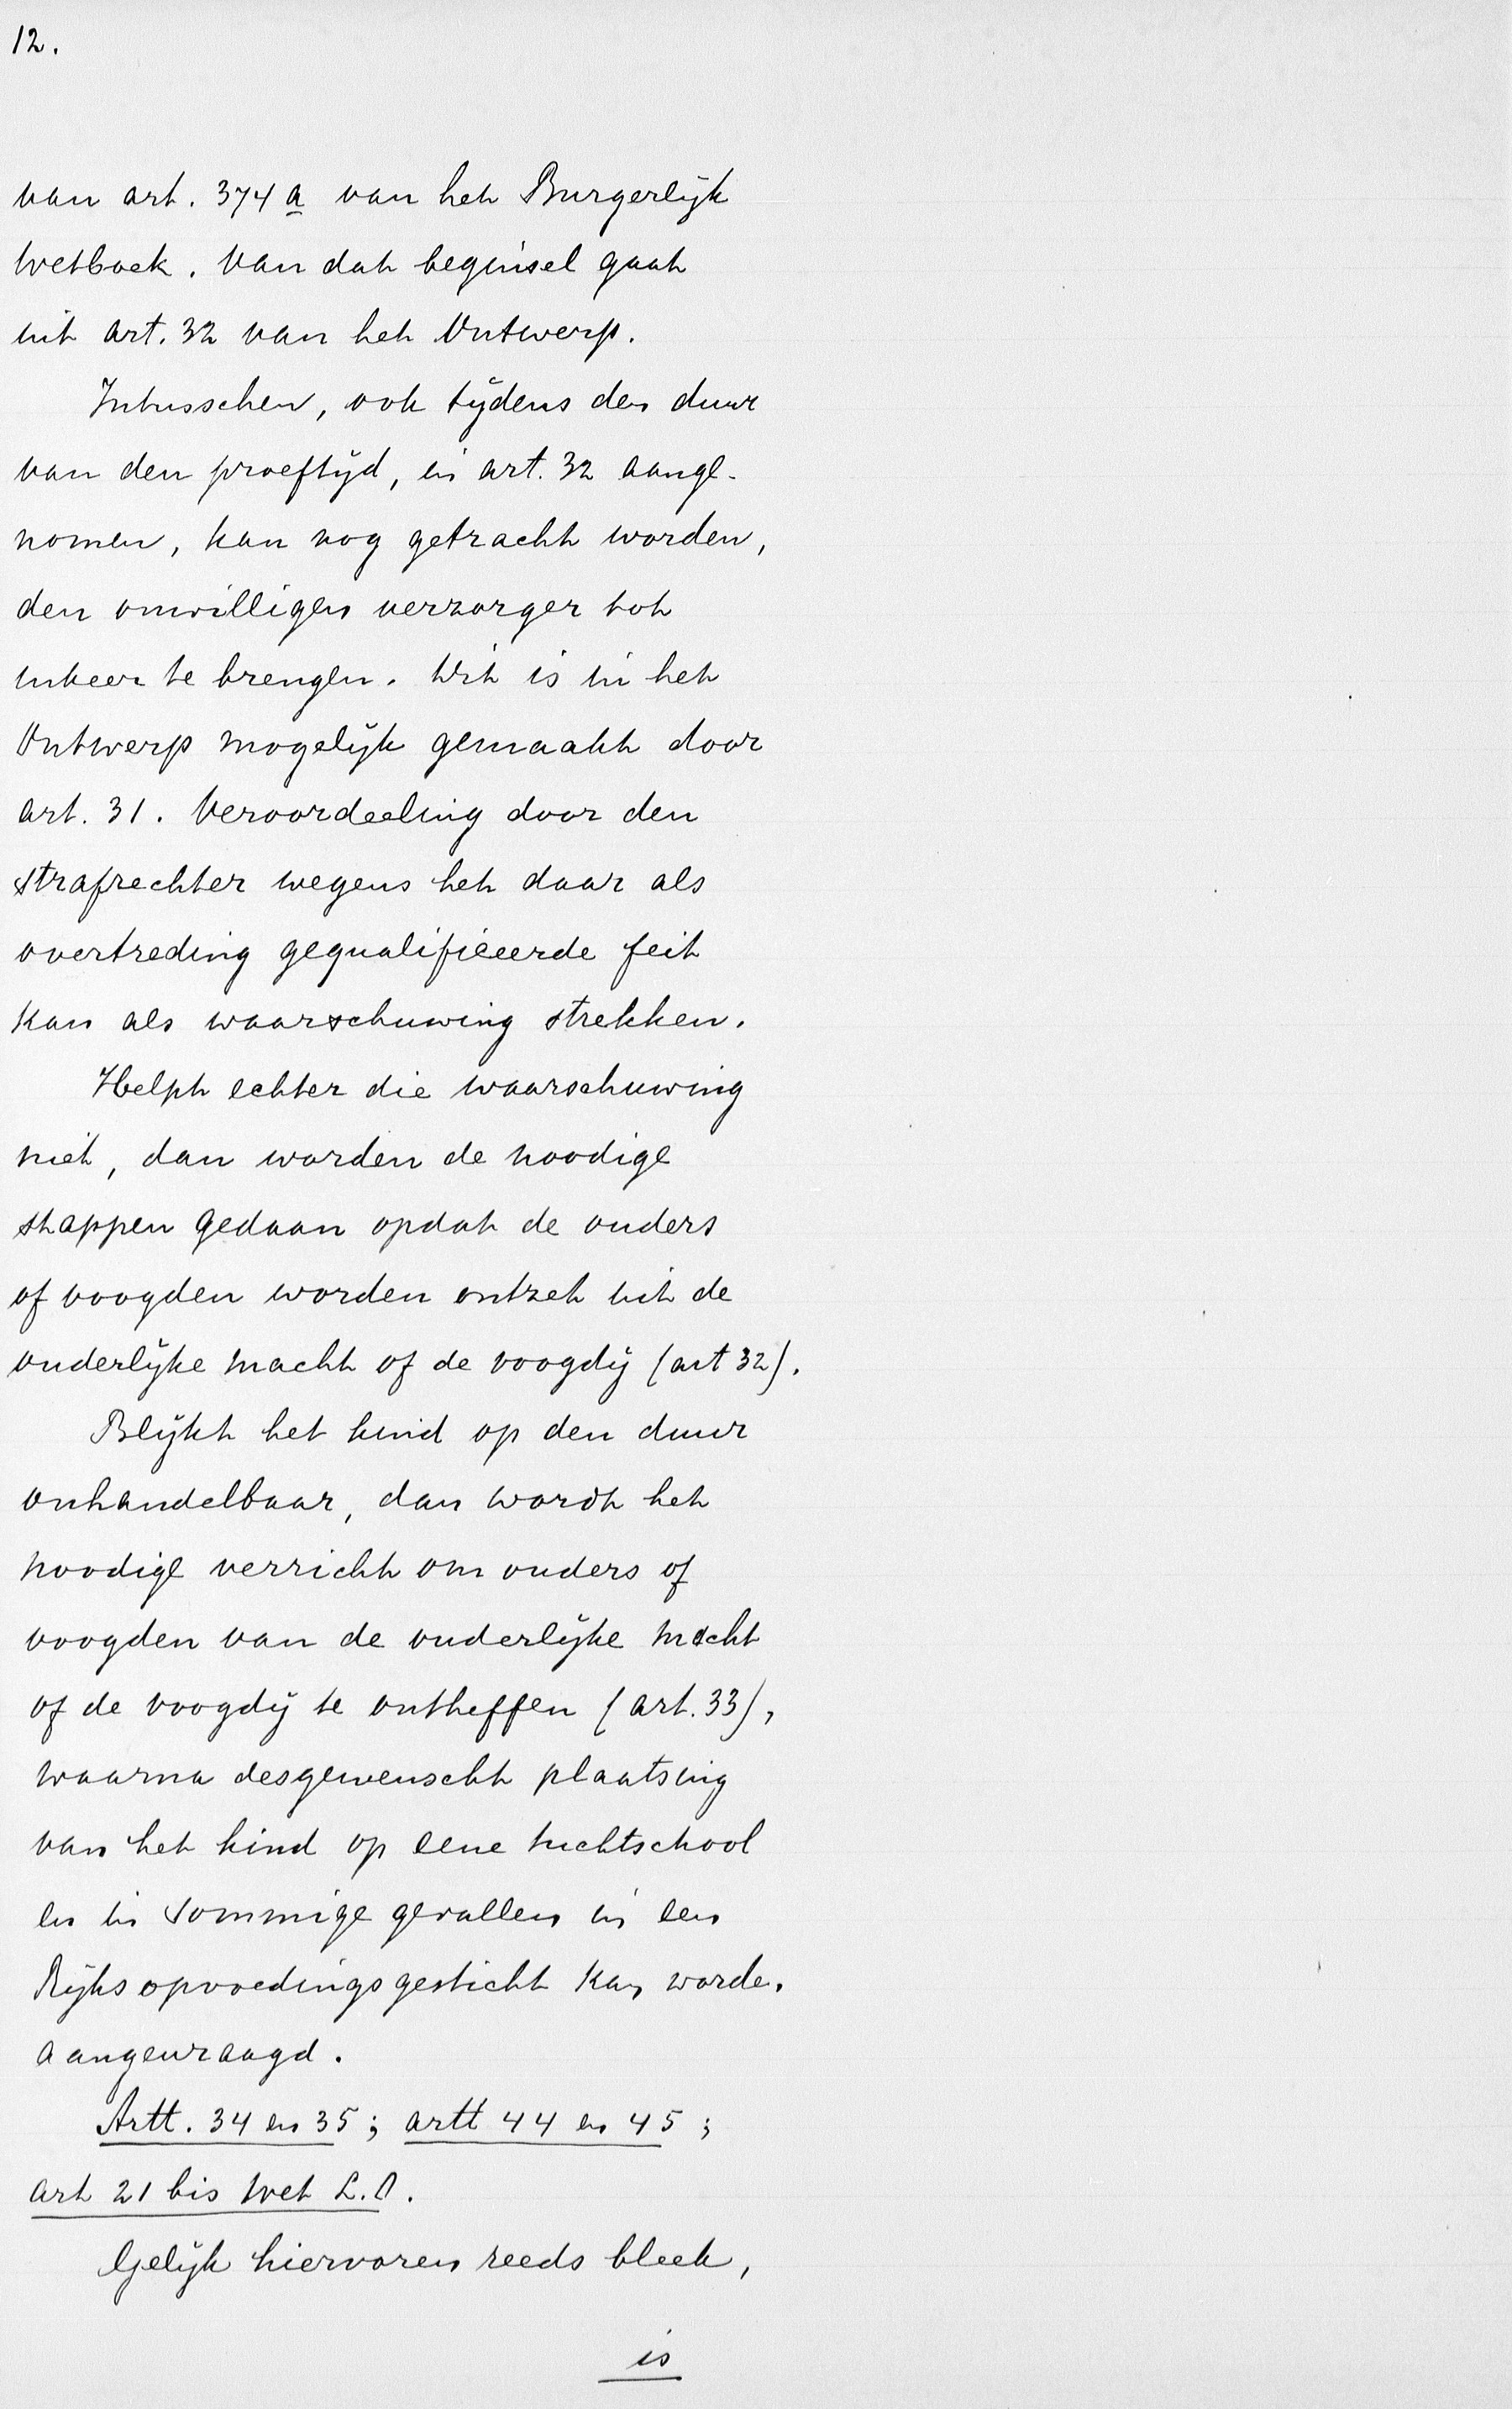 12.
van art. 374 a van het Burgerlijk
Wetboek. Van dat beginsel gaat
uit art. 32 van het Ontwerp.
Intusschen, ook tijdens den duur
van den proeftijd, in art. 32 aange-
nomen, kan nog getracht worden,
den onwilligen verzorger tot
inkeer te brengen. Dit is in het
Ontwerp mogelijk gemaakt door
art. 31. Veroordeeling door den
strafrechter wegens het daar als
overtreding gequalificeerde feit
kan als waarschuwing strekken.
Helpt echter die waarschuwing
niet, dan worden de noodige
stappen gedaan opdat de ouders
of voogden worden ontzet uit de
ouderlijke macht of de voogdij (art 32).
Blijkt het kind op den duur
onhandelbaar, dan wordt het
noodige verricht om ouders of
voogden van de ouderlijke macht
of de voogdij te ontheffen (art. 33),
waarna desgewenscht plaatsing
van het kind op eene tuchtschool
en in sommige gevallen in een
Rijksopvoedingsgesticht kan worden
aangevraagd.
Artt. 34 en 35; artt 44 en 45;
art 21 bis Wet L.O.
Gelijk hiervoren reeds bleek,
is